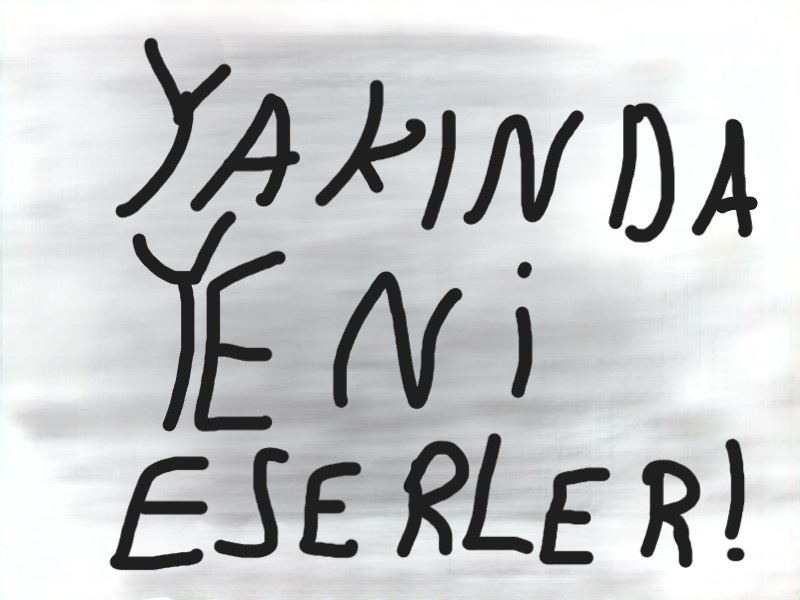 YAKINDA
YENİ
ESERLER!